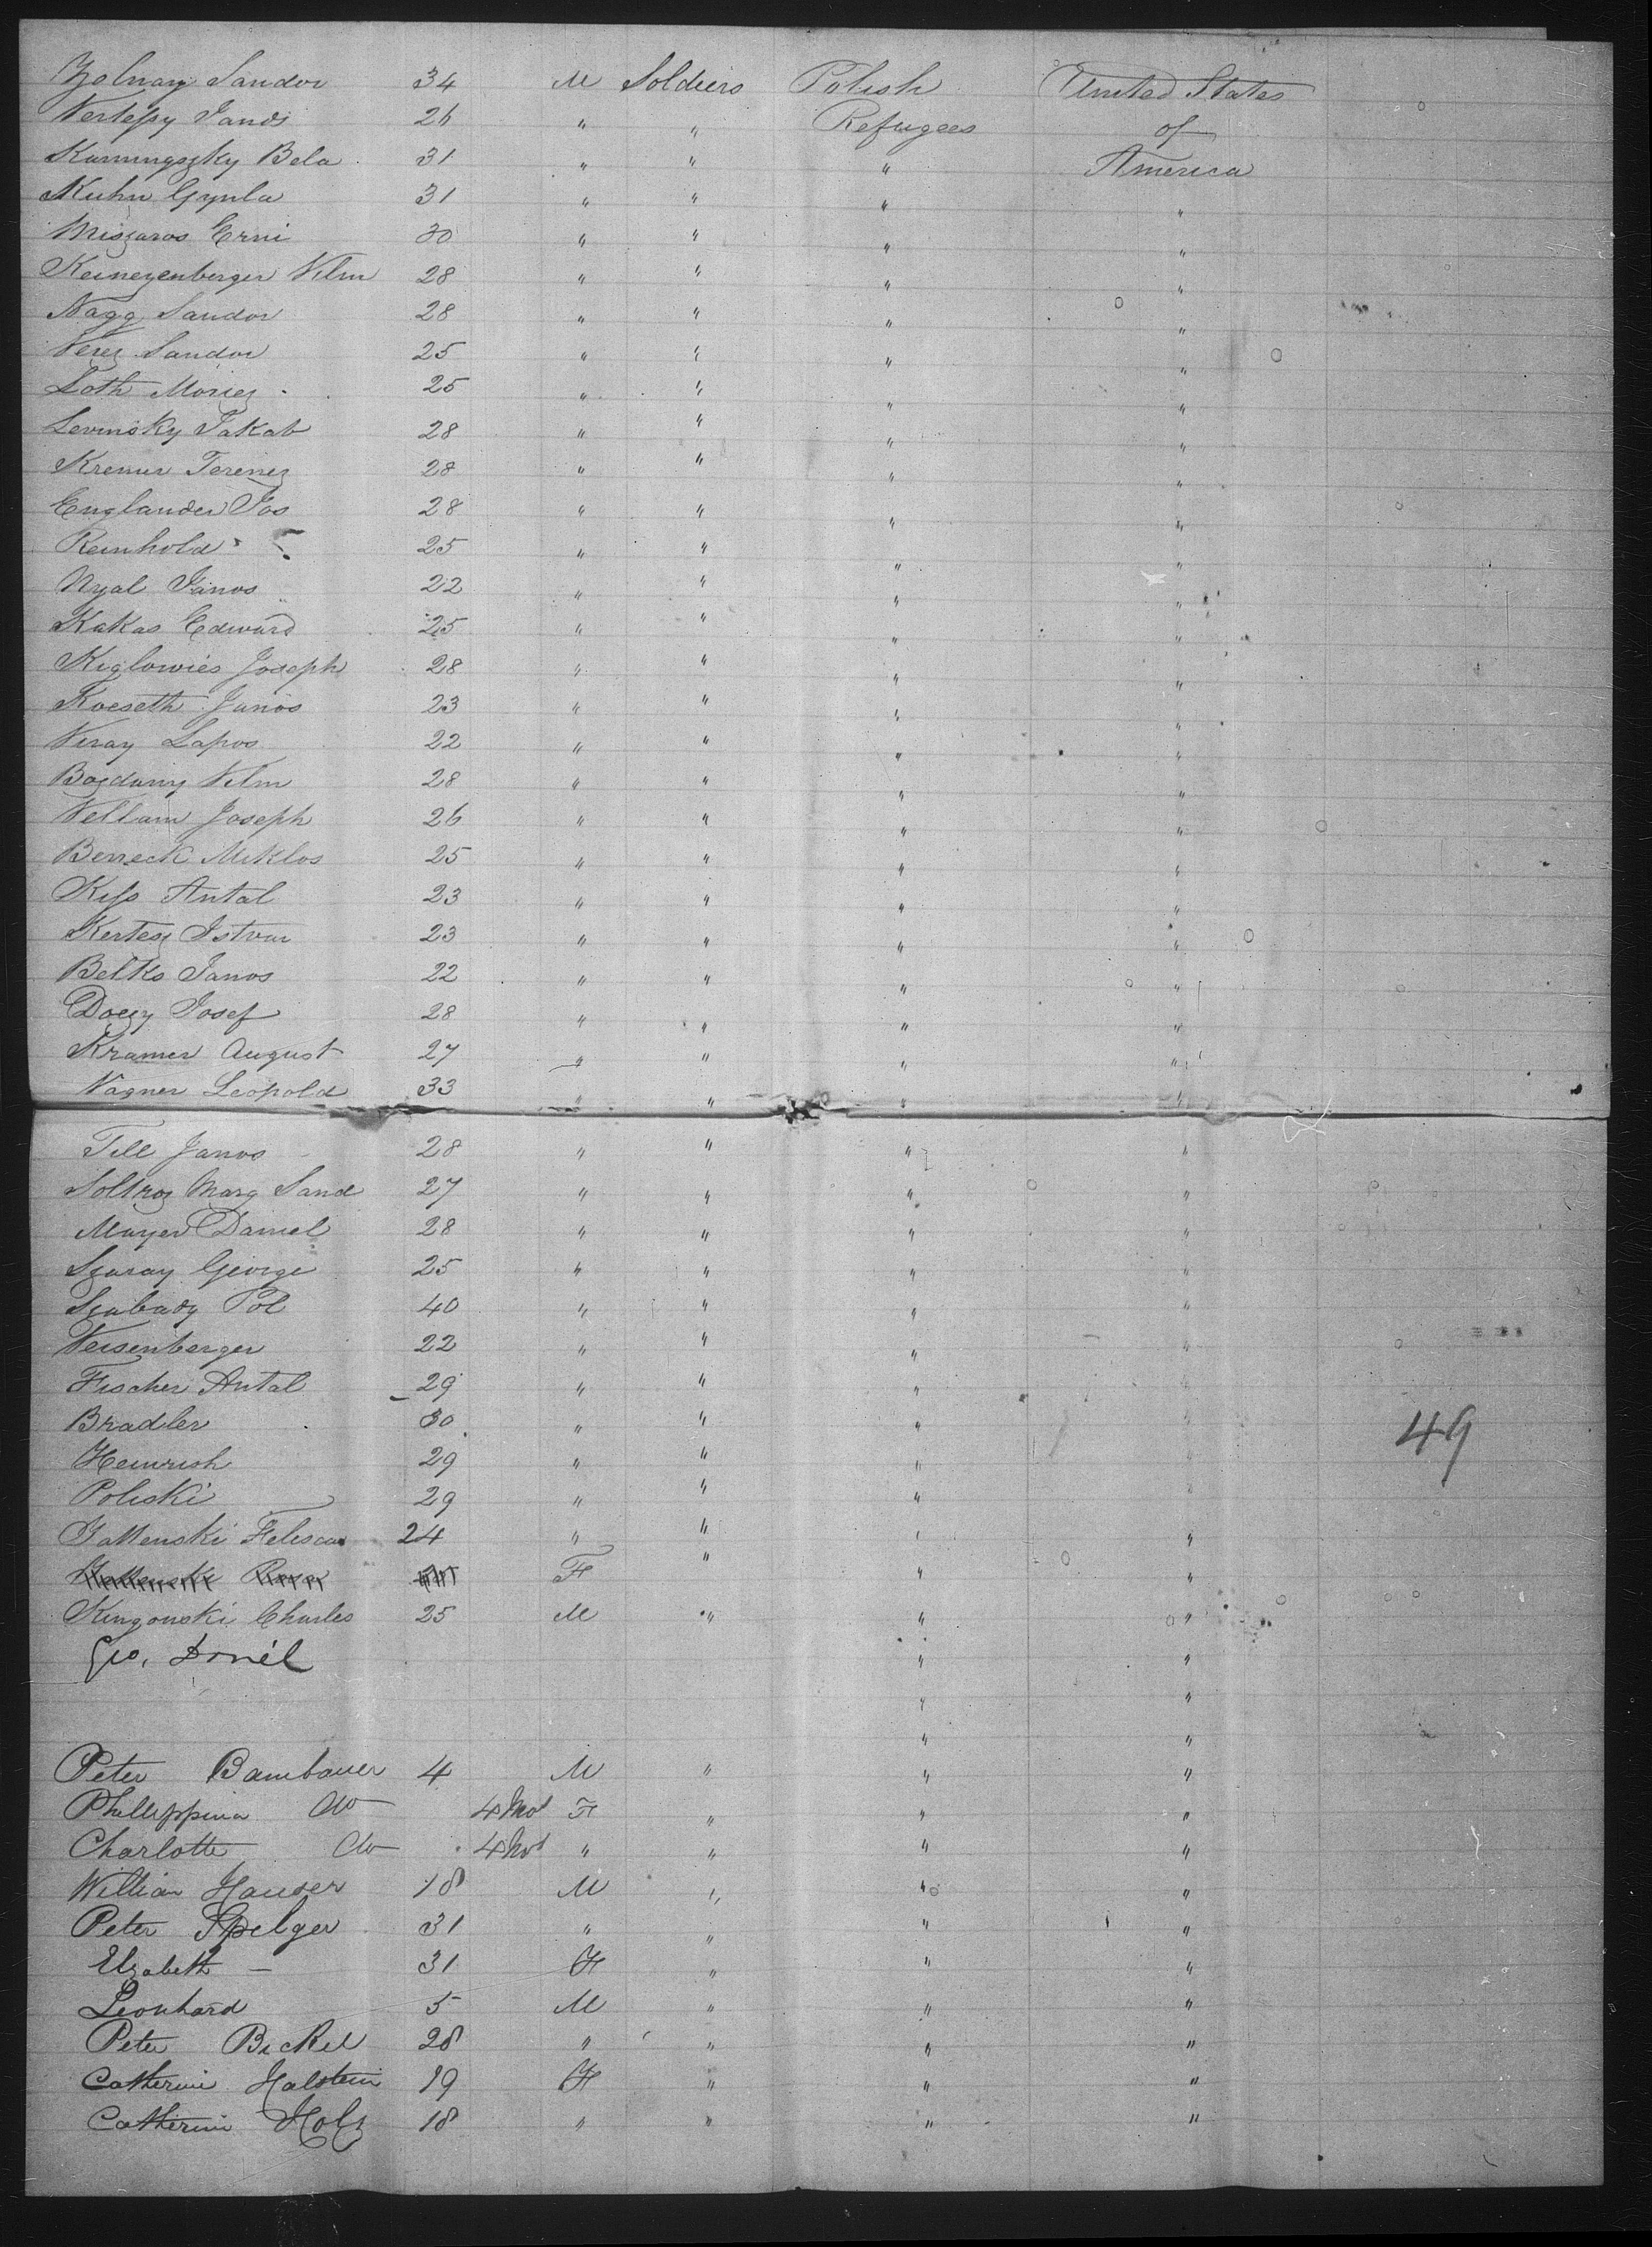 Zolnay Sandor 34 M Soldiers Polish United States
Vertessy Janos 26 " " Refugees of
Kummingszky Bela 31 " " " America
Kuhn Gyula 31 " " " "
Miszaros Erni 30 " " " "
Keinezenberger Vilm 28 " " " "
Nagg Sandor 28 " " " "
Veres Sandor 25 " " " "
Loth Moriez 25 " " " "
Levinsky Jakab 28 " " " "
Kremer Ferenez 28 " " " "
Englander Jos 28 " " " "
Reinhold 25 " " " "
Nyal Janos 22 " " " "
Kakas Edward 25 " " " "
Kiglowies Joseph 28 " " " "
Koeseth Janos 23 " " " "
Viray Lapos 22 " " " "
Bozdany Vilm 28 " " " "
Vellam Joseph 26 " " " "
Beneck Miklos 25 " " " "
Kiss Antal 23 " " " "
Kertesz Istvan 23 " " " "
Belko Janos 22 " " " "
Doczy Josef 28 " " " "
Kramer August 27 " " " "
Vagner Leopold 33 " " " "
Till Janos 28 " " " "
Soltroz Marg Sand 27 " " " "
Mayer Daniel 28 " " " "
Szaray George 25 " " " "
Szabady Pol 40 " " " "
Veisenberger 22 " " " "
Fischer Antal 29 " " " "
Bradler 30 " " " " 49
Heinrish 29 " " " "
Poliski 29 " " " "
Jattenski Felesca 24 " " " "
F " " "
Kingonski Charles 25 M " " "
Geo. Donél " "
" "
" "
Peter Bambauer 4 M " " "
Phillippina do 4 Mos F " " "
Charlotte do 4 Mos " " " "
William Hauser 18 M " " "
Peter Spelger 31 " " " "
Elizabeth — 31 F " " "
Leonhard 5 M " " "
Peter Bickel 28 " " " "
Catherine Halstein 19 F " " "
Catherine Holz 18 " " " "